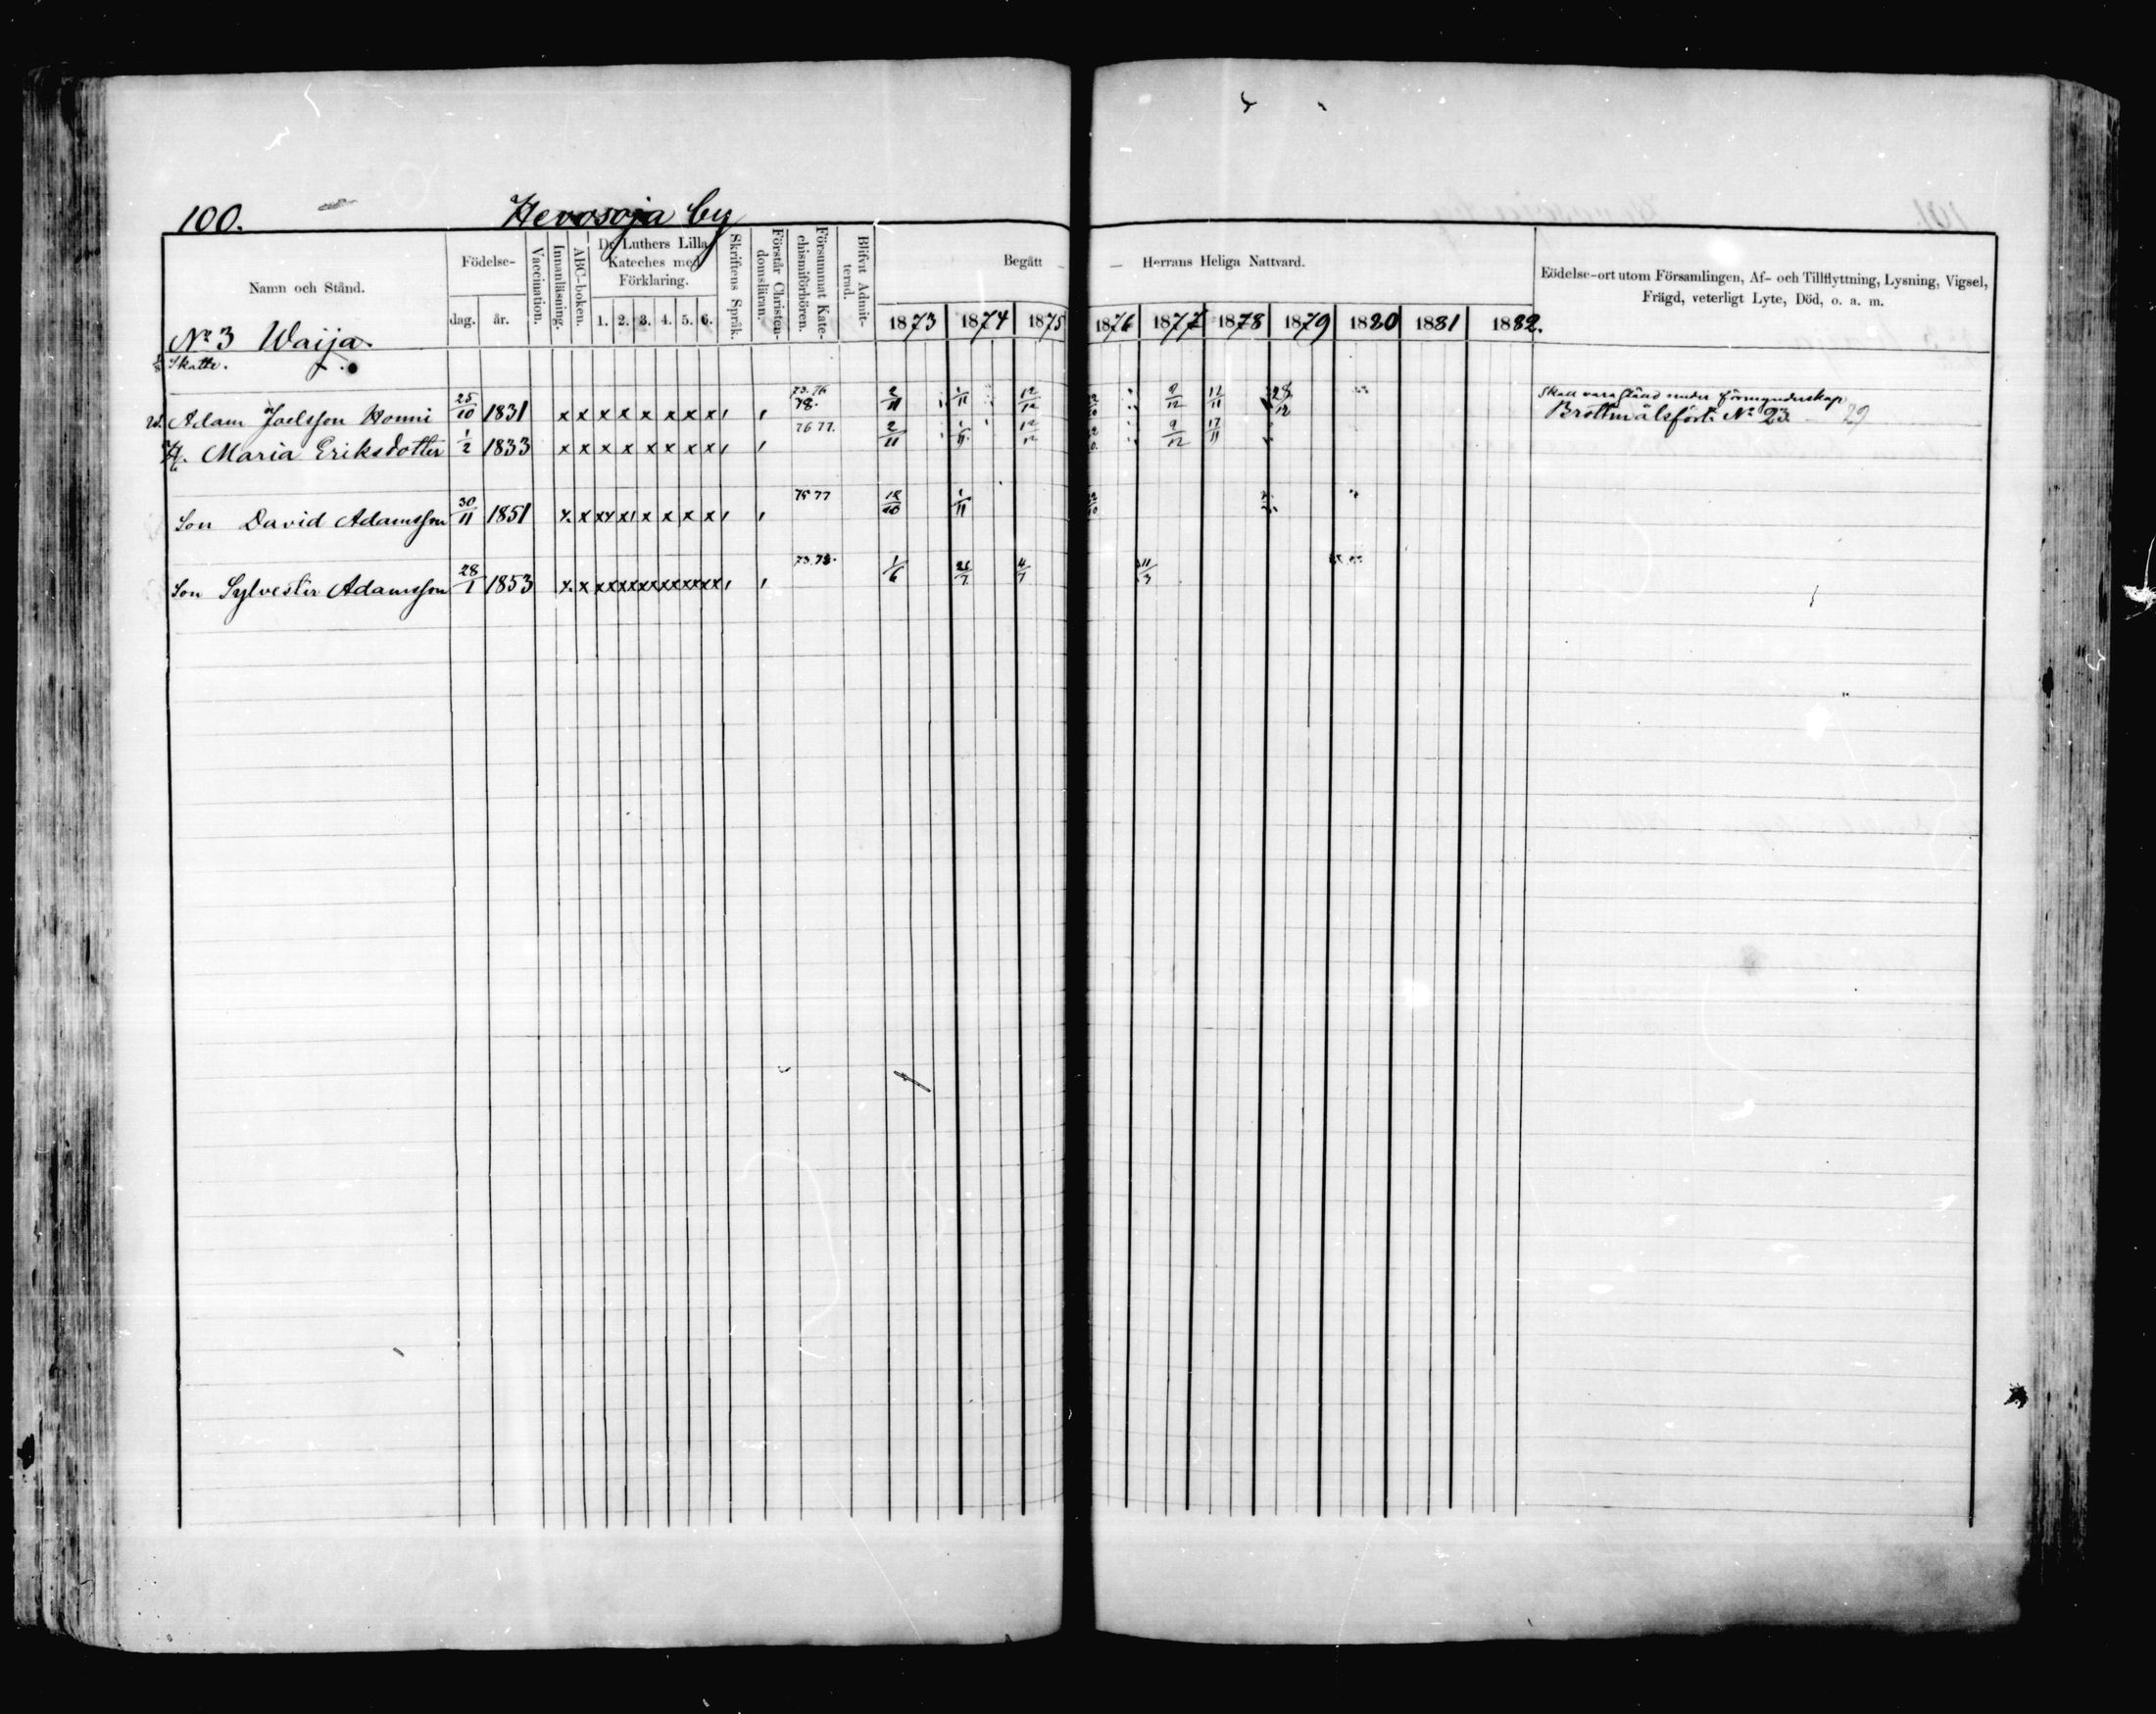 100. Hevosoja by
Namn och Stånd.
Födelse-
dag. år.
Vaccination.
Innanläsning.
ABC-boken.
Dr Luthers Lilla
Kateches med
Förklaring.
1. 2. 3. 4. 5. 6.
Skriftens Språk.
Förstår Christen-
domsläran.
Försummat Kate-
chismiförhören.
Blifvit Admit-
terad.
Begått — — Herrans Heliga Nattvard.
1873 1874 1875 1876 1877 1878 1879 1880 1881 1882.
Födelse-ort utom Församlingen, Af- och Tillflyttning, Lysning, Vigsel,
Frägd, veterligt Lyte, Död, o. a. m.
No 3 Waija.
Skatte.
Adam Joelsson Honni 25/10 1831 x x x x x x x x 73. 76 78. 2/11 1/11 12/12 9/12 17/11 28/12 Skall vara ståld under förmynderskap
Brottmålsfört. No 23. 29
H. Maria Eriksdotter 1/2 1833 x x x x x x x x 76 77. 2/11 1/11 12/12 9/12 17/11
Son David Adamsson 30/11 1851 x x xx x x x x x 75 77 1/11
Son Sylvester Adamsson 28/1 1853 x x xxxxxxxxxxxx 73. 78. 1/6 26/7 4/7 11/3